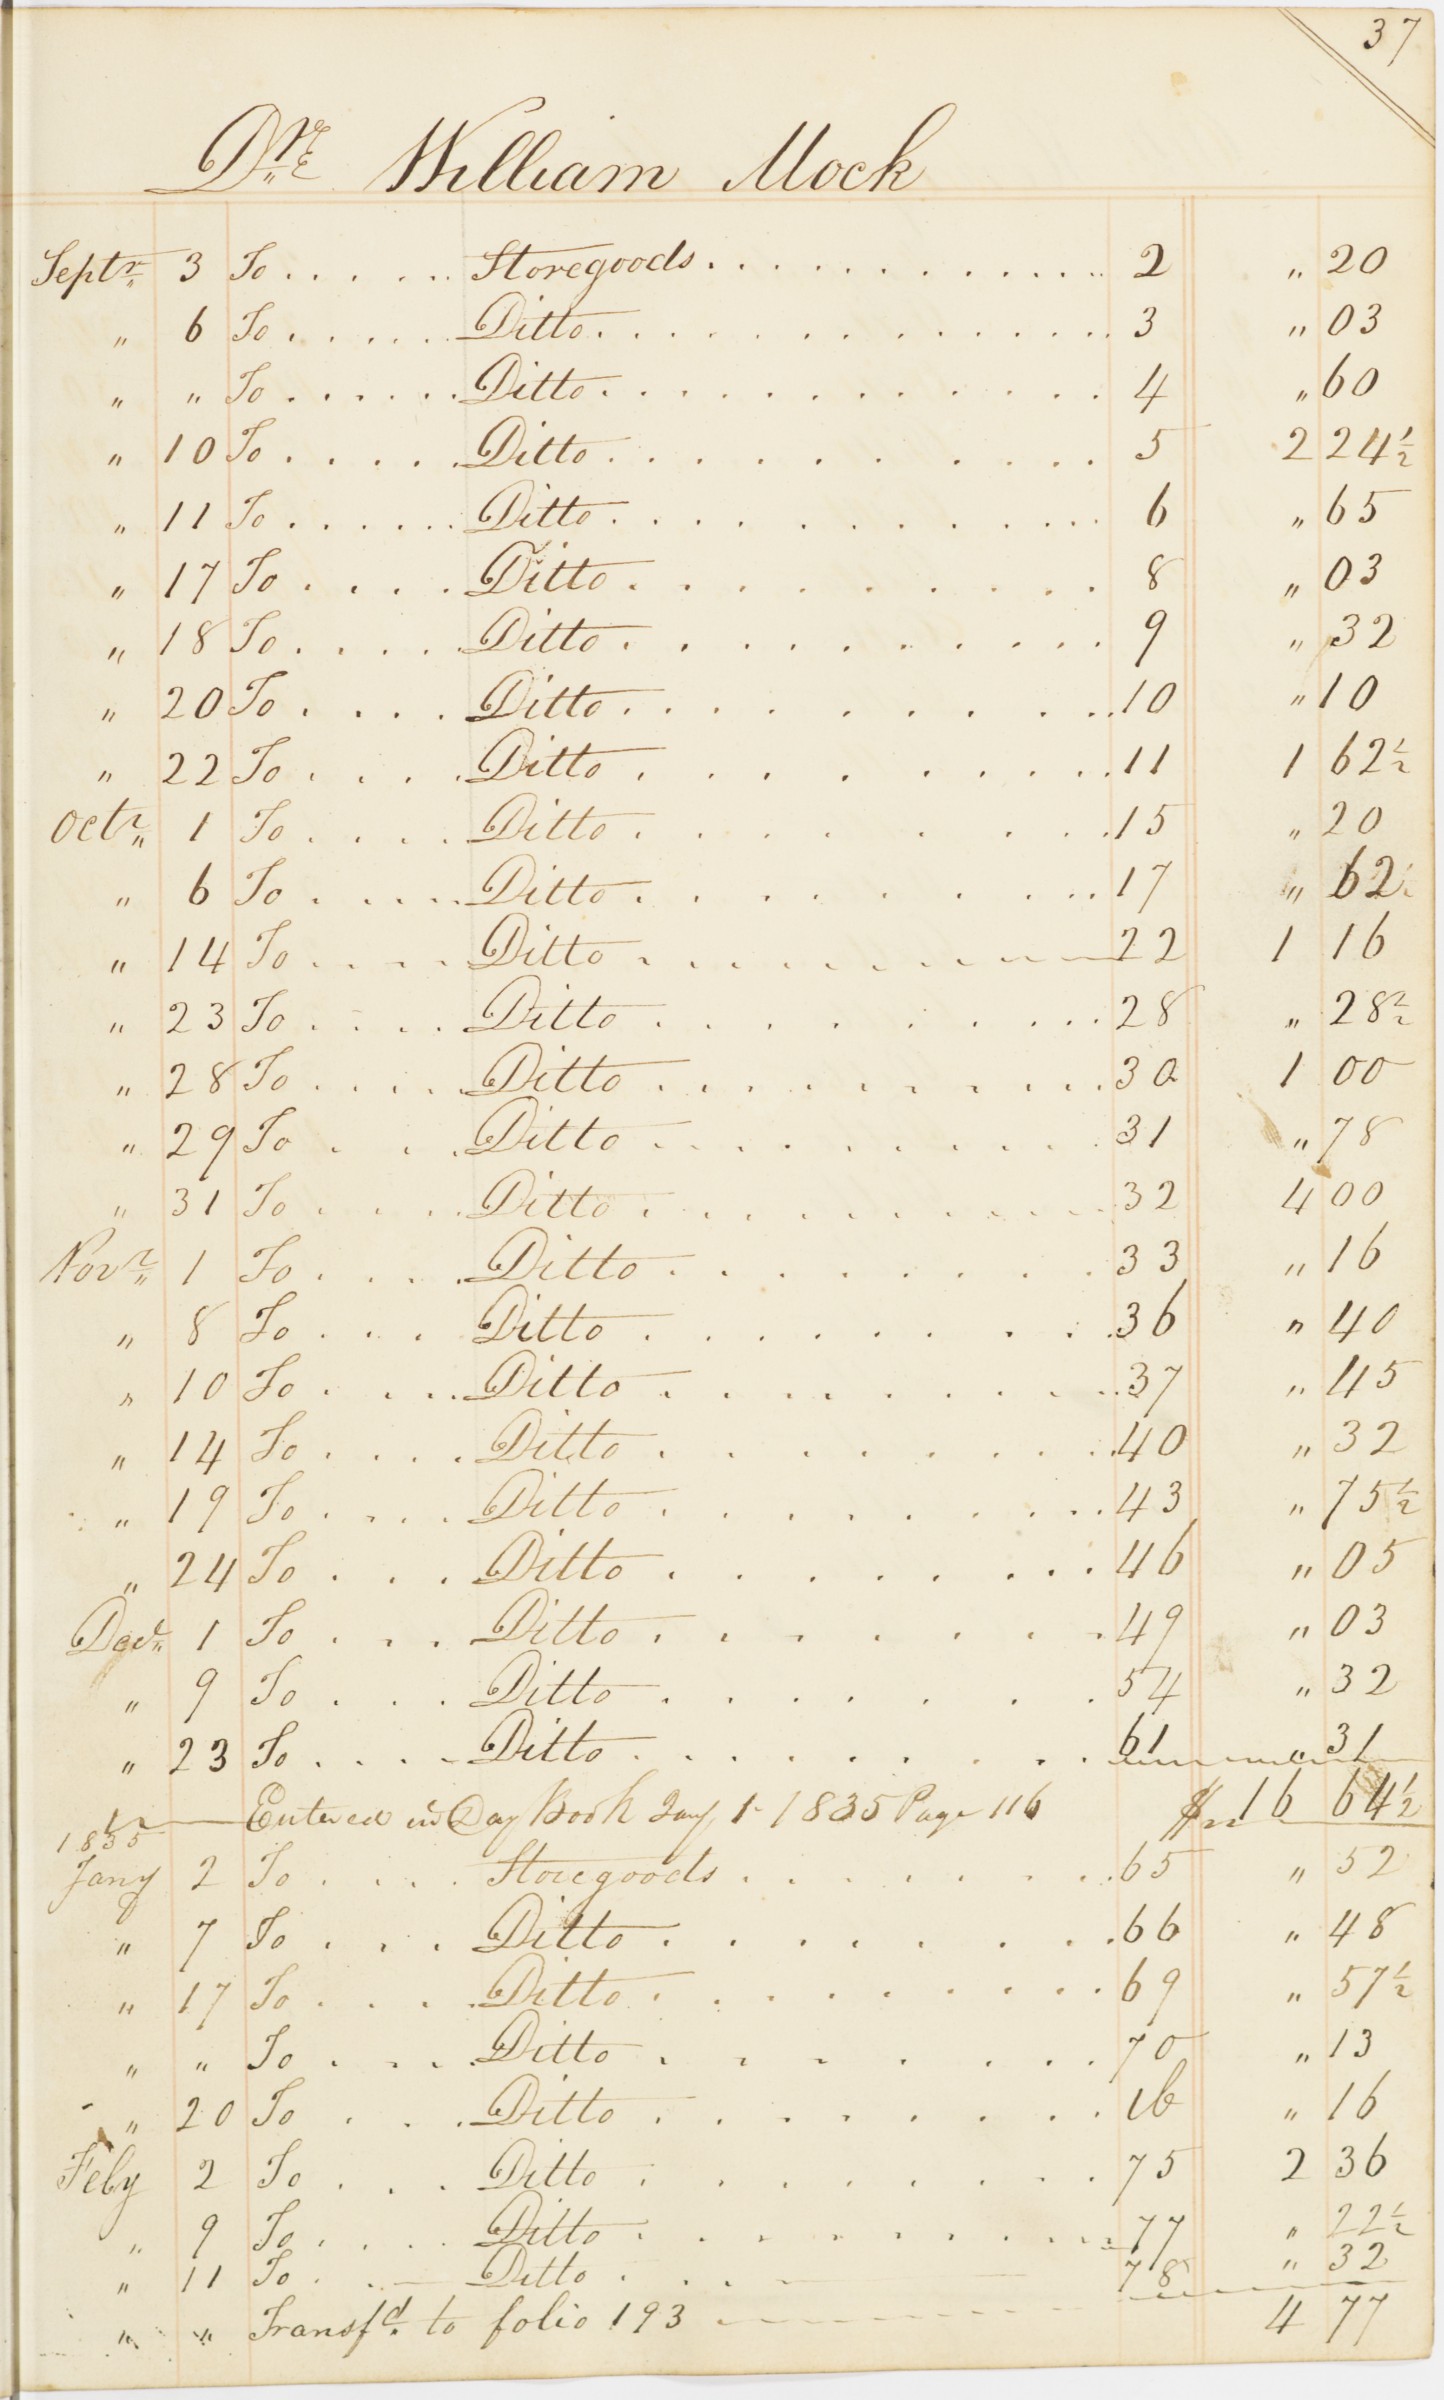 37
Dr. William Mock
Septr. 3 To . . . . . Storegoods . . . . . . . . . . . 2 " 20
" 6 To . . . . . Ditto . . . . . . . . . . . 3 " 03
" " To . . . . . Ditto . . . . . . . . . . . 4 " 60
" 10 To . . . . . Ditto . . . . . . . . . . . 5 2 24½
" 11 To . . . . . Ditto . . . . . . . . . . . 6 " 65
" 17 To . . . . Ditto . . . . . . . . . . 8 " 03
" 18 To . . . . Ditto . . . . . . . . . . 9 " 32
" 20 To . . . . Ditto . . . . . . . . . . 10 " 10
" 22 To . . . . Ditto . . . . . . . . . . 11 1 62½
Octr. 1 To . . . . Ditto . . . . . . . . . 15 " 20
" 6 To . . . . Ditto . . . . . . . . . 17 " 62½
" 14 To . . . . Ditto . . . . . . . . . 22 1 16
" 23 To . . . . Ditto . . . . . . . . . 28 " 28½
" 28 To . . . . Ditto . . . . . . . . . 30 1 00
" 29 To . . . Ditto . . . . . . . . . 31 " 78
" 31 To . . . . Ditto . . . . . . . . . 32 4 00
Novr. 1 To . . . . Ditto . . . . . . . . 33 " 16
" 8 To . . . Ditto . . . . . . . . 36 " 40
" 10 To . . . . Ditto . . . . . . . . 37 " 45
" 14 To . . . . Ditto . . . . . . . . 40 " 32
" 19 To . . . . Ditto . . . . . . . . 43 " 75½
" 24 To . . . Ditto . . . . . . . . 46 " 05
Decr. 1 To . . . Ditto . . . . . . . 49 " 03
" 9 To . . . Ditto . . . . . . . 54 " 32
" 23 To . . . . Ditto . . . . . . . . 61 " 31
Entered in Day Book Jany 1 1835 Page 116 $ 16 64½
1835
Jany 2 To . . . . Storegoods . . . . . . . 65 " 52
" 7 To . . . Ditto . . . . . . . . 66 " 48
" 17 To . . . . Ditto . . . . . . . . 69 " 57½
" " To . . . . Ditto . . . . . . . . 70 " 13
" 20 To . . . Ditto . . . . . . . . 1b " 16
Feby 2 To . . . Ditto . . . . . . . . 75 2 36
" 9 To . . . . Ditto . . . . . . . . 77 " 22½
" 11 To . . . Ditto . . . . 78 " 32
" " Transfd. to folio 193 4 77